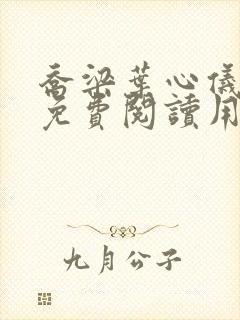 喬梁葉心儀
免費閱讀用
九月公子